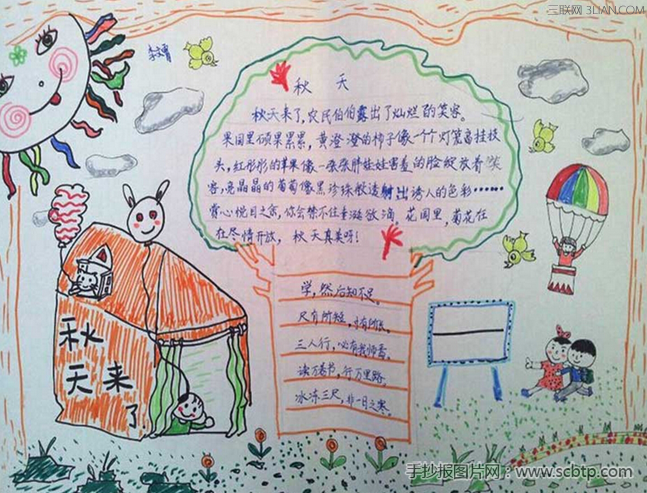 三联网 3LIAN.COM
秋 天
秋天来了,农民伯伯露出了灿烂的笑容。
果园里硕果累累,黄澄澄的柿子像一个个灯笼高挂枝
头,红彤彤的苹果像一张张胖娃娃害羞的脸绽放着笑
容,亮晶晶的葡萄像黑珍珠般透射出诱人的色彩……
赏心悦目之余,你会禁不住垂涎欲滴,花园里,菊花在
在尽情开放,秋天真美呀!
学,然后知不足。
尺有所短,寸有所长。
三人行,必有我师焉。
读万卷书,行万里路。
冰冻三尺,非一日之寒。
秋
天来
了
手抄报图片网:www.scbtp.com